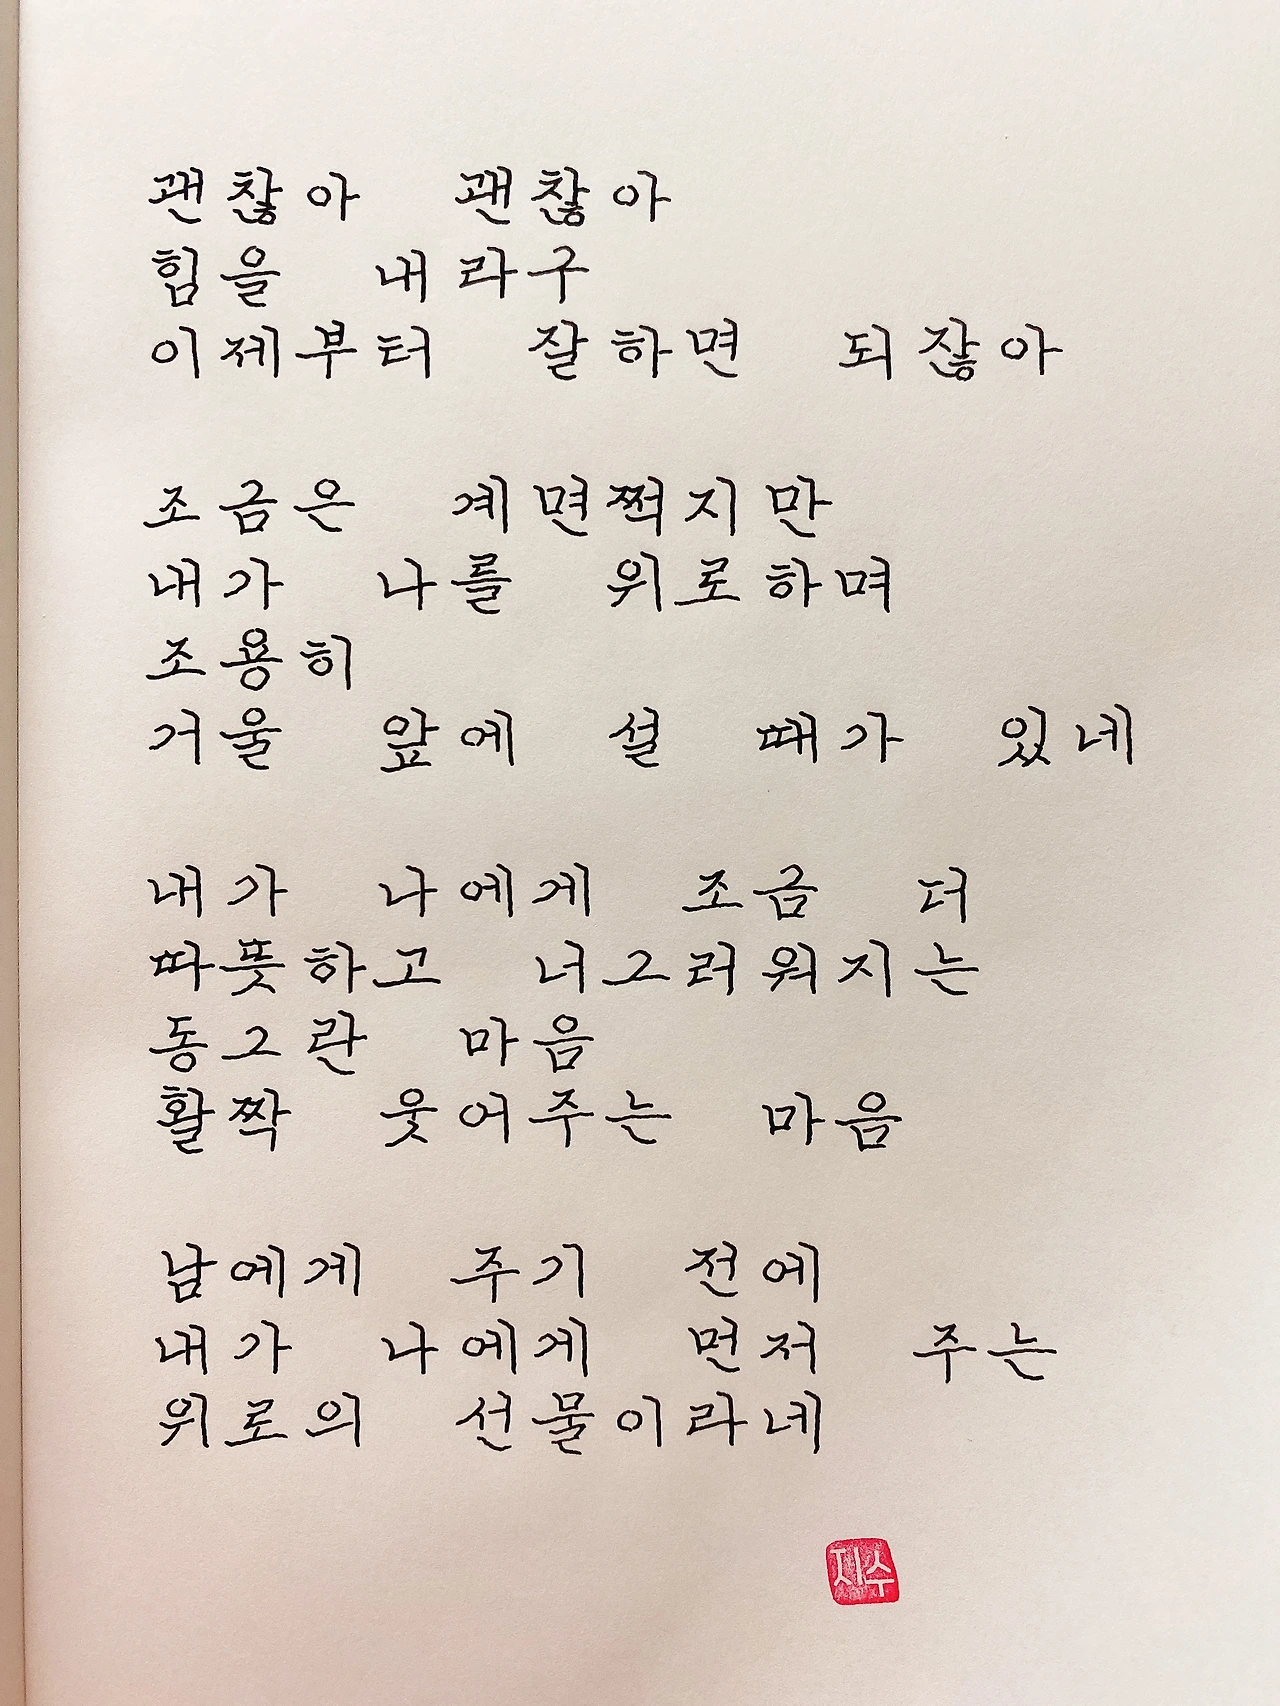 괜찮아 괜찮아
힘을 내라구
이제부터 잘하면 되잖아
조금은 계면쩍지만
내가 나를 위로하며
조용히
거울 앞에 설 때가 있네
내가 나에게 조금 더
따뜻하고 너그러워지는
동그란 마음
활짝 웃어주는 마음
남에게 주기 전에
내가 나에게 먼저 주는
위로의 선물이라네
지수